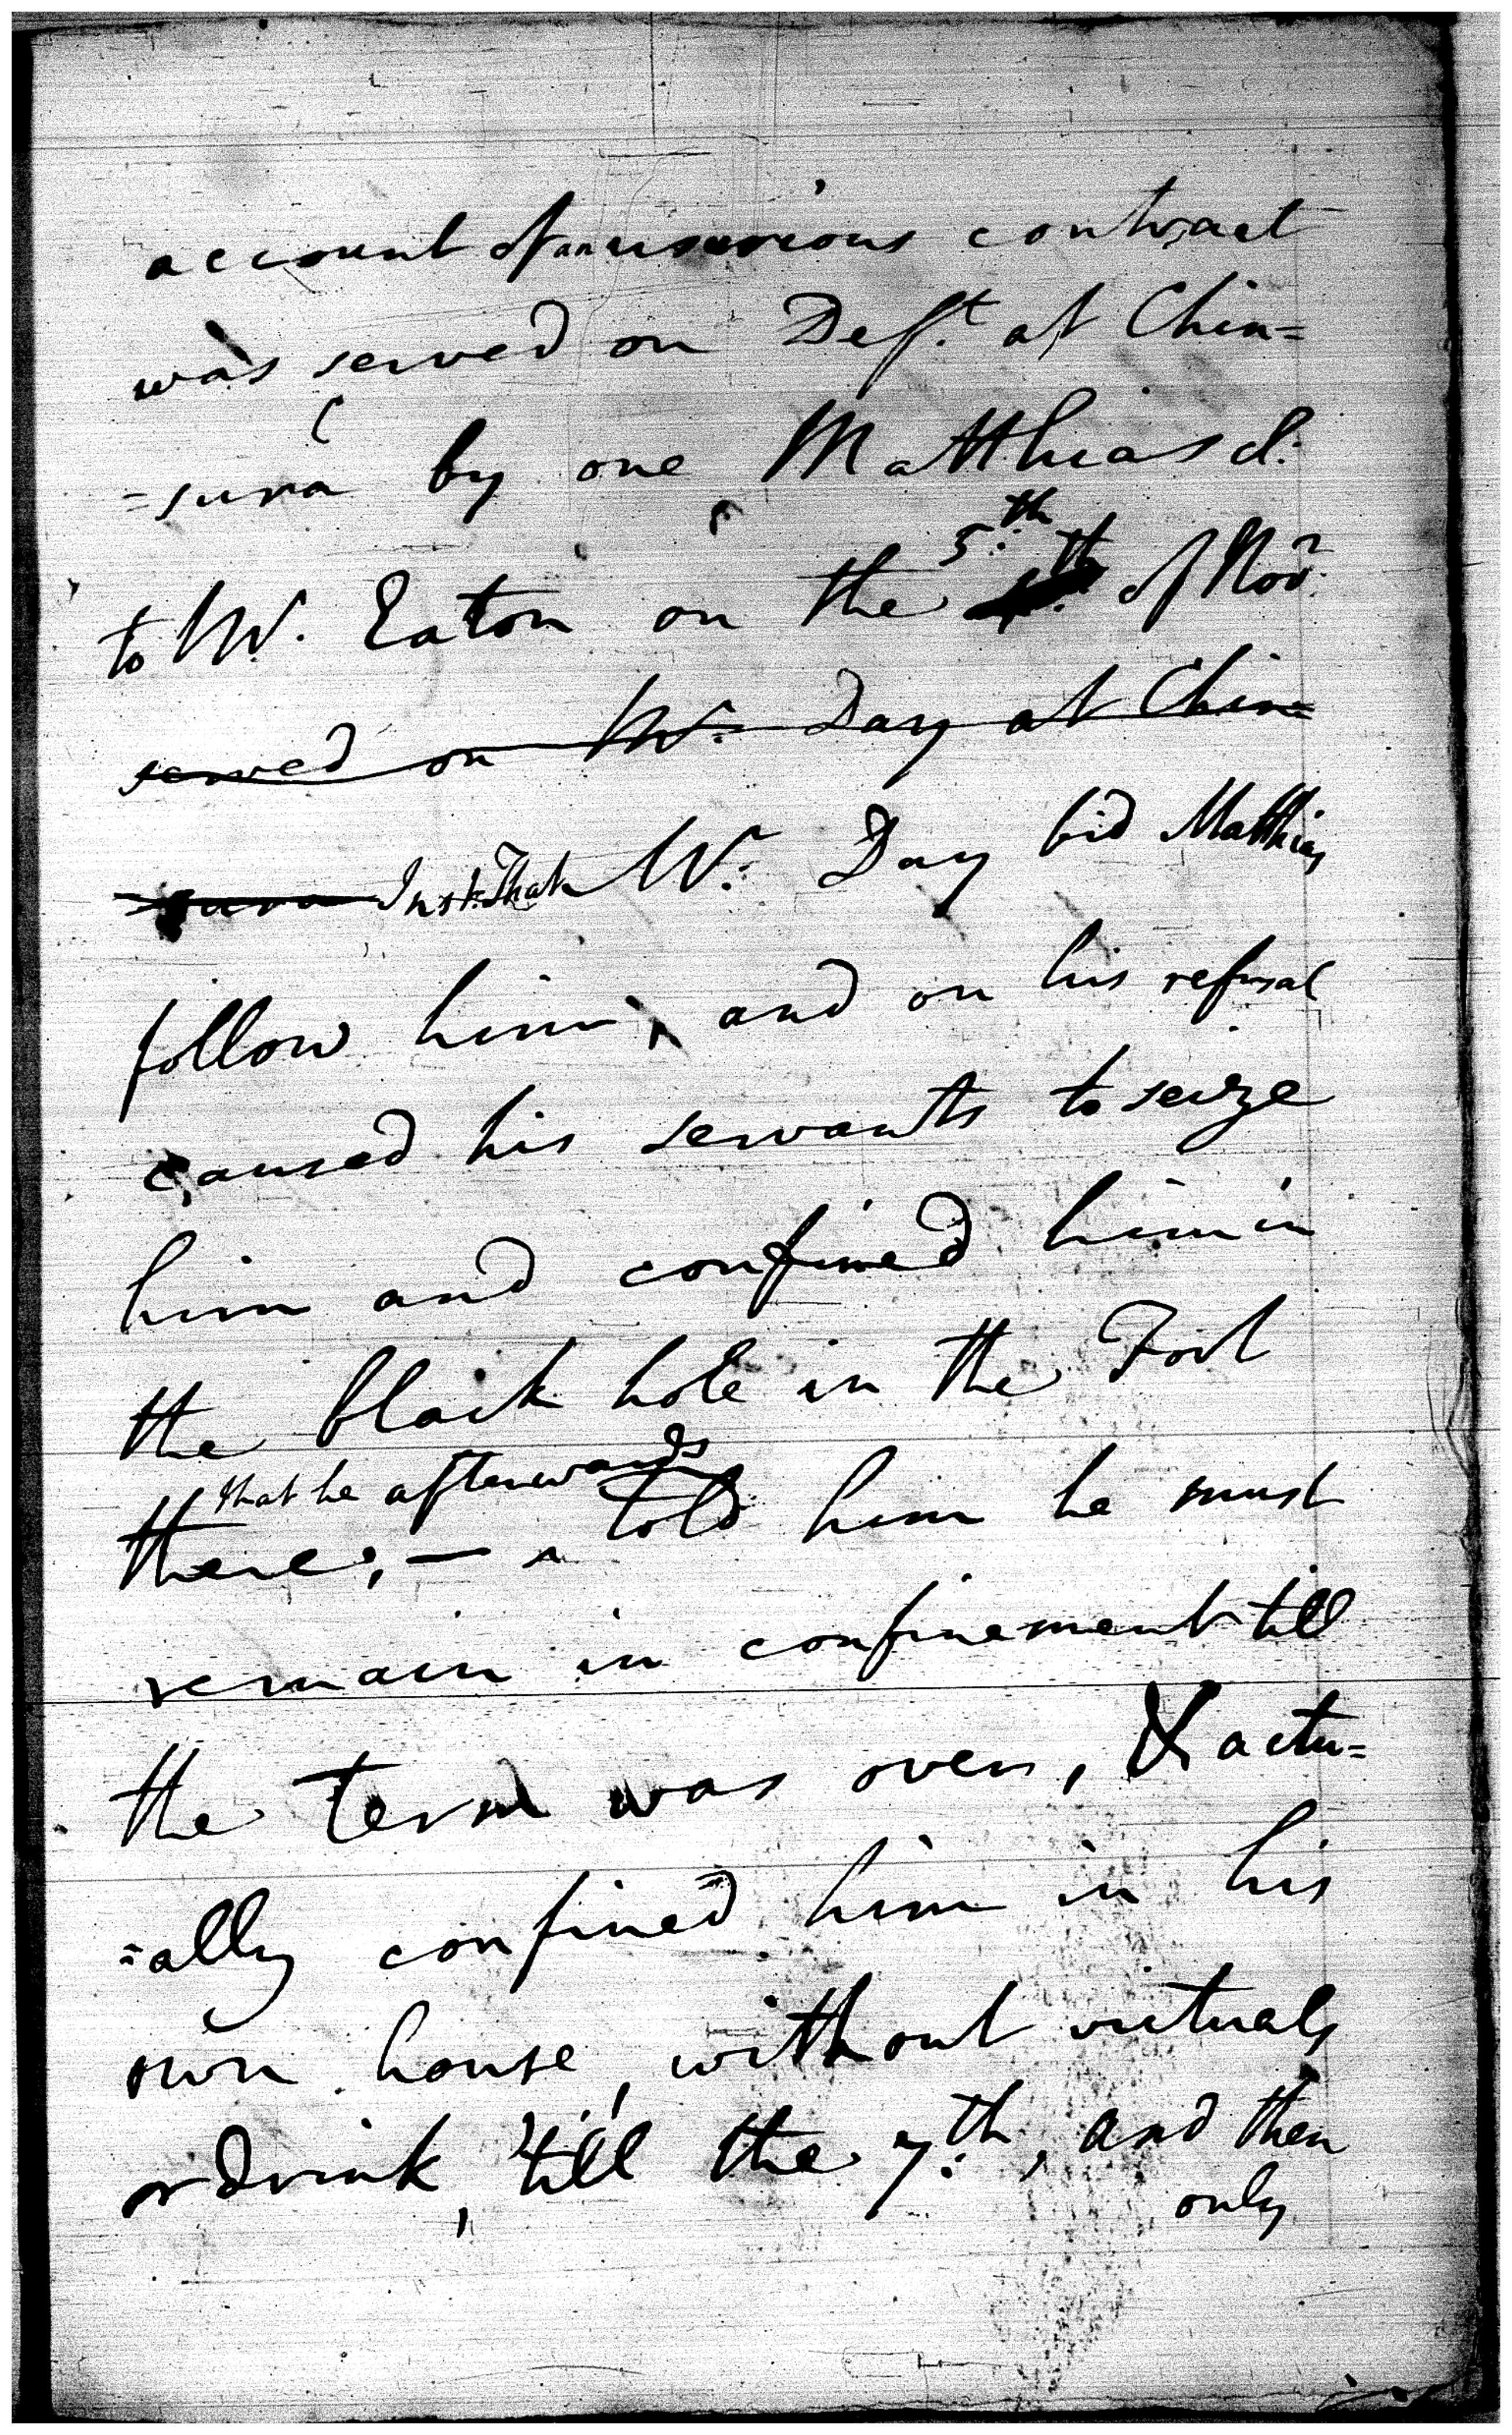 account of an usurious contract
was served on Def.t at Chin=
=sura by one Matthias cl.
to Mr. Eaton on the 5.th of Nov.r
served on Mr. Day at Chin=
=sura Inst. That Mr. Day bid Matthias
follow him, and on his refusal
caused his servants to seize
him and confined him in
the black hole in the Fort
that he afterwards
there; — ^ told him he must
remain in confinement till
the term was over, & actu=
=ally confined him in his
own house, without victuals
or drink, till the 7.th, and then
only